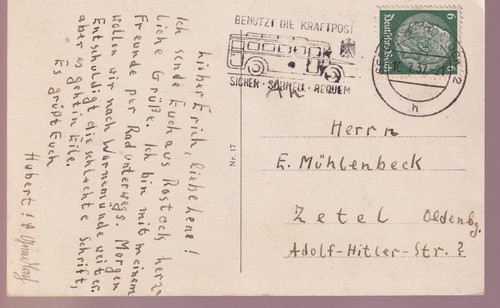 Lieber Erich, liebe Lene!
Ich sende Euch aus Rostock herz-
liche Grüße. Ich bin mit meinem
Freunde per Rad unterwegs. Morgen
wollen wir nach Warnemünde weiter.
Entschuldigt die schlechte Schrift,
aber es geht in Eile.
Es grüßt Euch
Hubert
BENUTZT DIE KRAFTPOST
SICHER · SCHNELL · BEQUEM
6 6
Deutsches Reich
37
h
An
Nr. 17
Herrn
E. Mühlenbeck
Zetel Oldenbg.
Adolf-Hitler-Str. ?